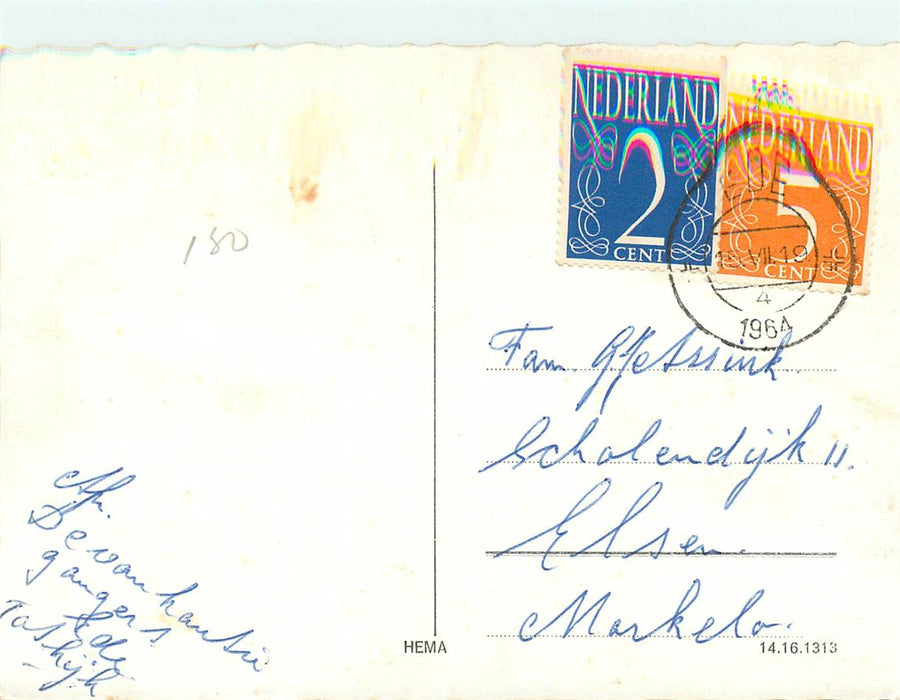 NEDERLAND
2
CENT
NEDERLAND
5
CENT
EDE
VII.19
4
1964
180
Fam.
Scholendijk 11.
Elsen.
Markelo.
Afz.
De vakantie
gangers
HEMA
14.16.1313